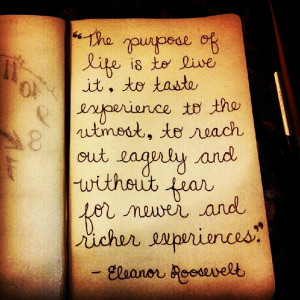 "The purpose of
life is to live
it, to taste
experience to the
utmost, to reach
out eagerly and
without fear
for newer and
richer experiences."
- Eleanor Roosevelt